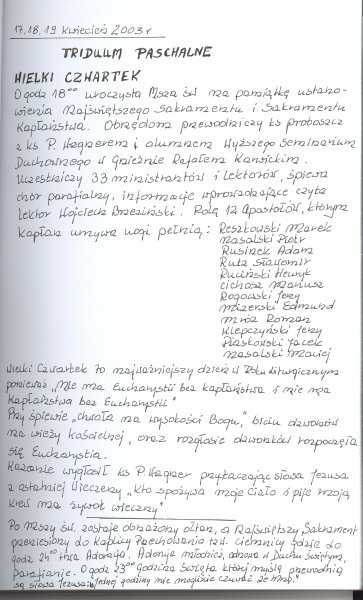 17, 18, 19 kwiecień 2003 r
TRIDUUM PASCHALNE
WIELKI CZWARTEK
O godz 18⁰⁰ uroczysta Msza św na pamiątkę ustano-
wienia Najświętszego Sakramentu i Sakramentu
Kapłaństwa. Obrzędom przewodniczy ks proboszcz
z ks P. Wagnerem i alumnem Wyższego Seminarium
Duchownego w Gnieźnie Rafałem Kawickim.
Uczestniczy 33 ministrantów i Lektorów, śpiewa
chór parafialny, informacje wprowadzające czyta
Lektor Wojciech Brzeziński. Rolę 12 Apostołów, którym
Kapłan umywa nogi pełnią: Reszkowski Marek
Masalski Piotr
Rusinek Adam
Ruta Sławomir
Ruciński Henryk
Cichosz Mariusz
Rogowski Jerzy
Edmund
Mróz Roman
Klepczyński Jerzy
Piaskowski Jacek
Masalski Maciej
Wielki Czwartek to najważniejszy dzień w Roku Liturgicznym
ponieważ „Nie ma Eucharystii bez kapłaństwa i nie ma
Kapłaństwa bez Eucharystii"
Przy śpiewie „Chwała na wysokości Bogu," biciu dzwonów
na wieży kościelnej, oraz rozgłosie dzwonków rozpoczęła
się Eucharystia.
Kazanie wygłosił ks P. Wagner przytaczając słowa Jezusa
z ostatniej Wieczerzy „Kto spożywa moje Ciało i pije moją
Krew ma żywot wieczny"
Po Mszy św. zostaje obnażony ołtarz, a Najświętszy Sakrament
przeniesiony do Kaplicy Przechowania tzw. ciemnicy gdzie do
godz 24⁰⁰ trwa Adoracja. Adoruje młodzież, odnowa w Duchu Świętym,
parafianie. O godz 23⁰⁰ godzina święta której myślą przewodnią
są słowa Jezusa: „jednej godziny nie mogliście czuwać ze Mną."